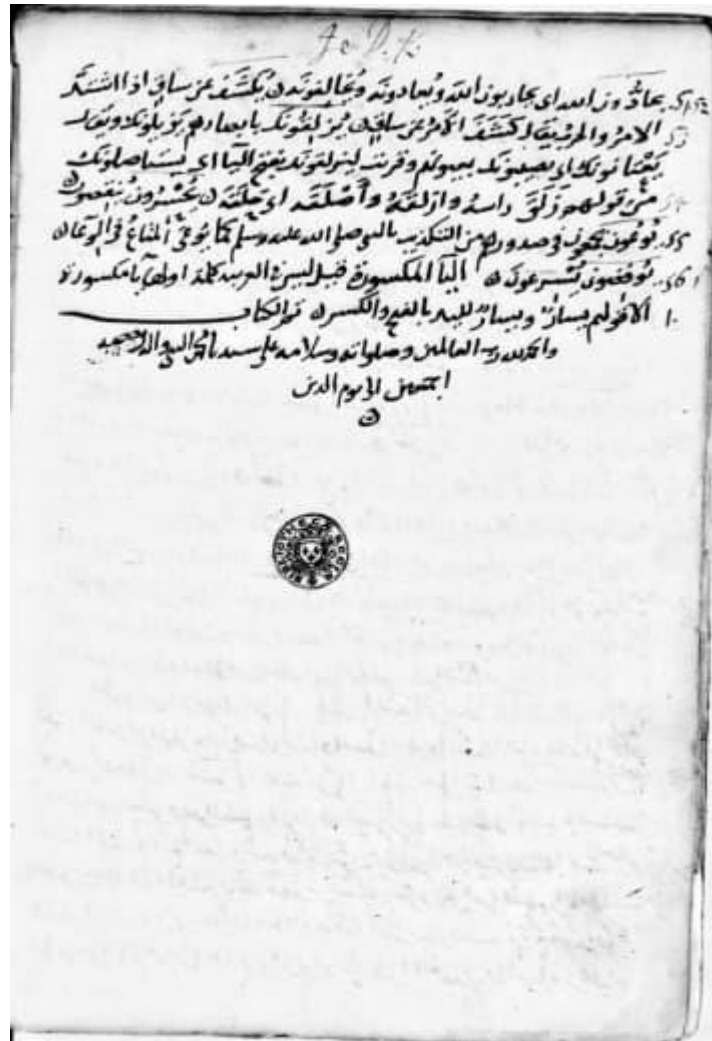 يحادّون الله اى يحاربون الله ويعادونه ويخالفونه ن يكشف عن ساق اذا اشتد
الامر والحرب قيل كشف الامر عن ساق ن يزلقونك بابصارهم يزيلونك ويقال
يعتانونك اى يصيبونك بعيونهم وقريت ليزلقونك بفتح اليا اى يستاصلونك
من قولهم زلق راسه وازلقه اى حلقه ن يخسرون ينقصون ن
يوعون يجمعون فى صدورهم من التكذيب بالنبى صلى الله عليه وسلم كما يوعى المتاع فى الوعا ن
يوفضون يسرعون ن اليا المكسورة قيل ليس فى العربية كلمة اولها يا مكسورة
الا قولهم يسار ويسار لليد بالفتح والكسر ن تم الكتاب
والحمد لله رب العالمين وصلواته وسلامه على سيدنا محمد النبى واله وصحبه
اجمعين الى يوم الدين
ن